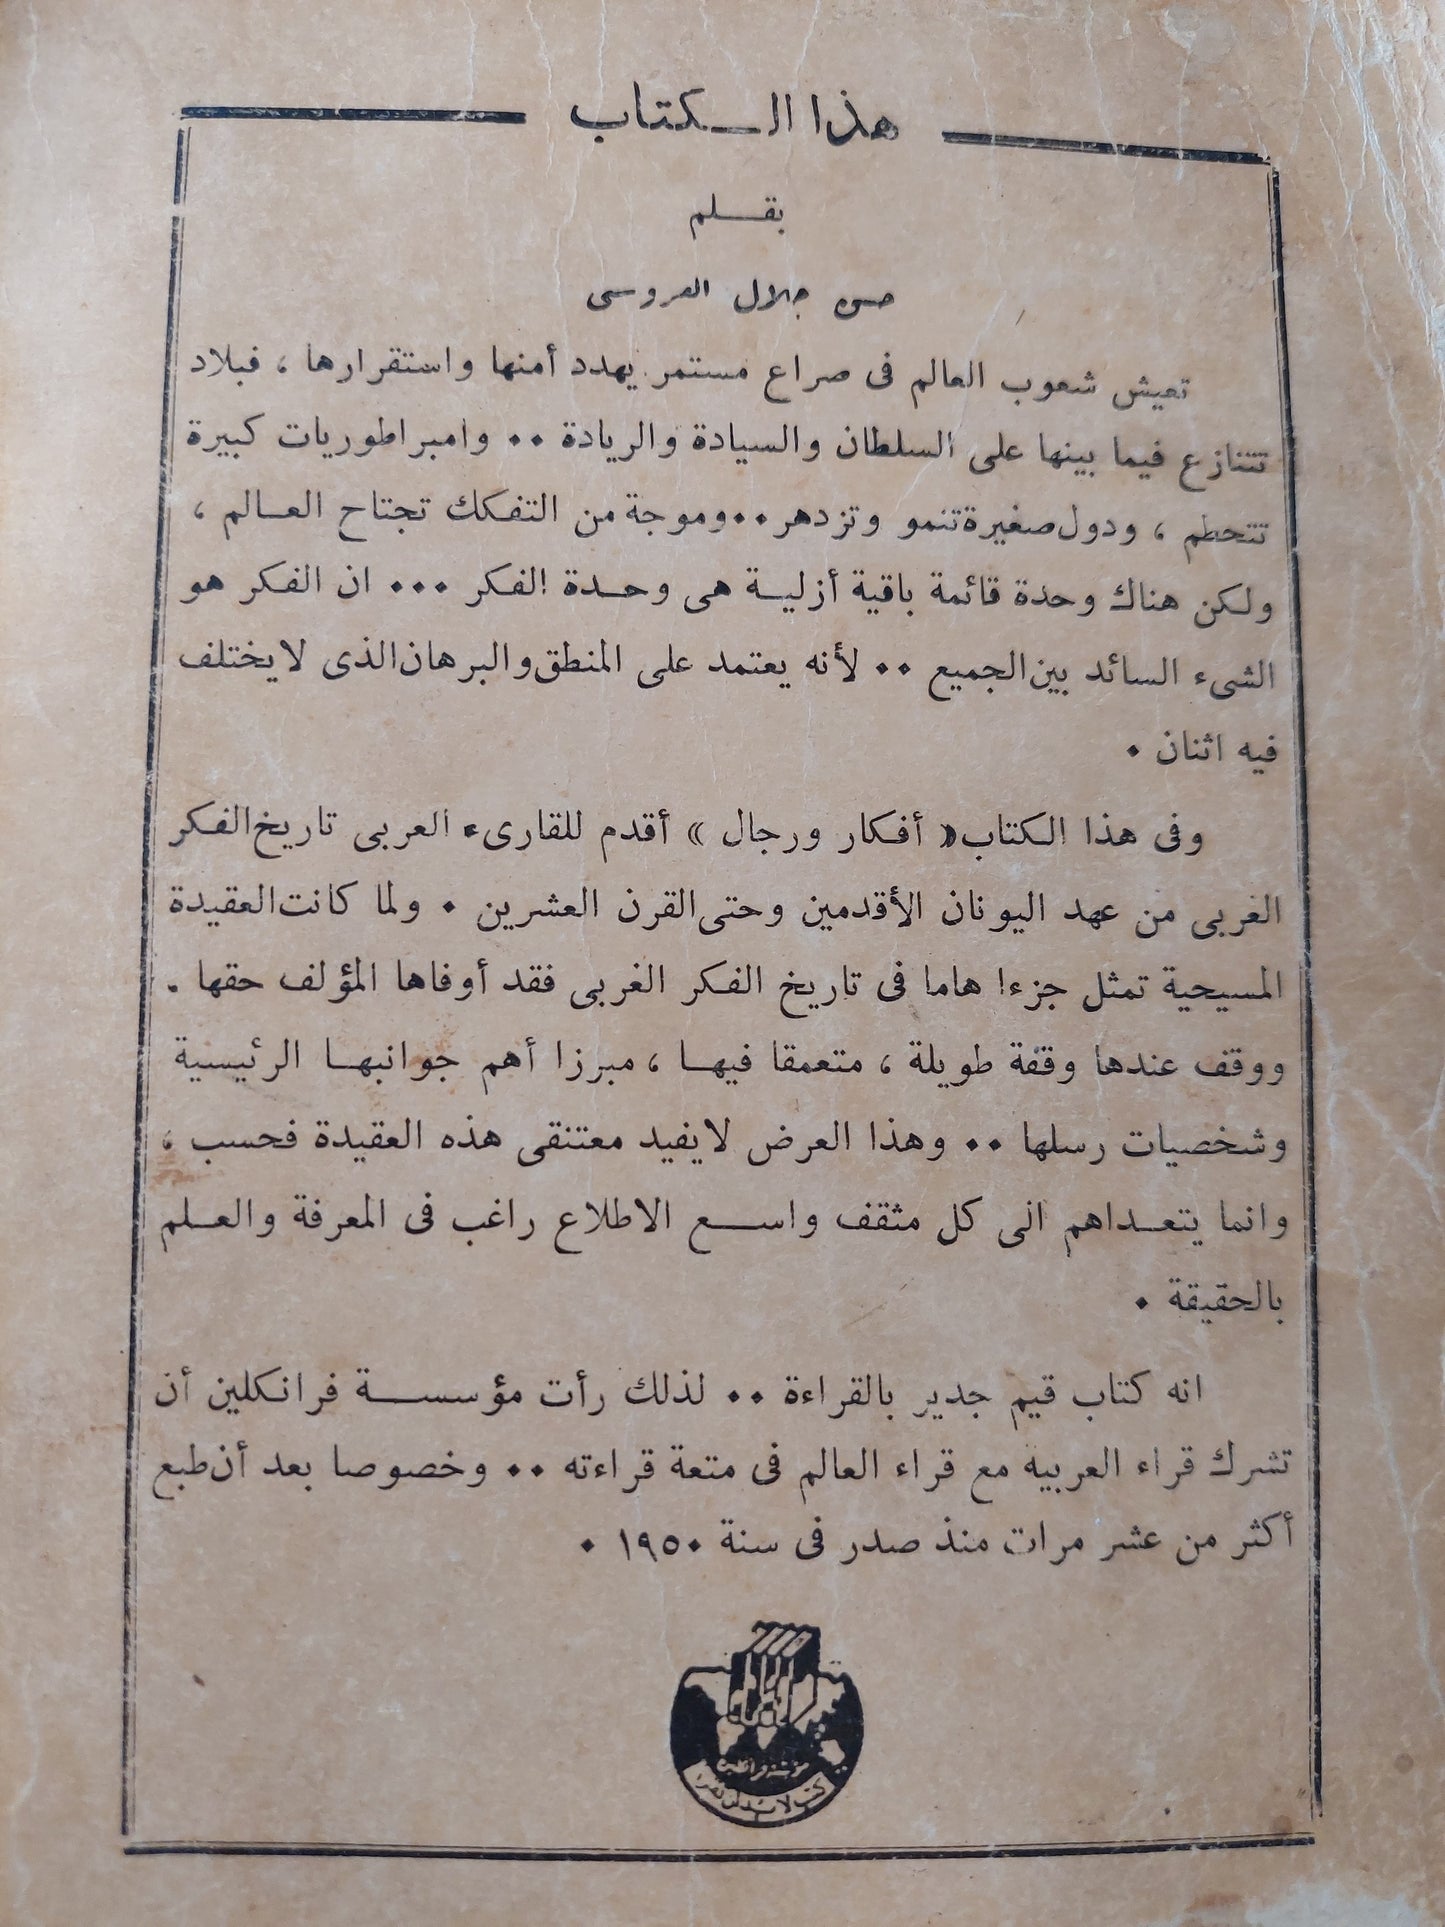 هذا الكتاب
بقلم
حسن جلال العروسى
تعيش شعوب العالم فى صراع مستمر يهدد أمنها واستقرارها ، فبلاد
تتنازع فيما بينها على السلطان والسيادة والريادة ٠٠ وامبراطوريات كبيرة
تتحطم ، ودول صغيرة تنمو وتزدهر ٠٠ وموجة من التفكك تجتاح العالم ،
ولكن هناك وحدة قائمة باقية أزلية هى وحدة الفكر ٠٠٠ ان الفكر هو
الشىء السائد بين الجميع ٠٠ لأنه يعتمد على المنطق والبرهان الذى لا يختلف
فيه اثنان ٠
وفى هذا الكتاب « أفكار ورجال » أقدم للقارىء العربى تاريخ الفكر
الغربى من عهد اليونان الأقدمين وحتى القرن العشرين ٠ ولما كانت العقيدة
المسيحية تمثل جزءا هاما فى تاريخ الفكر الغربى فقد أوفاها المؤلف حقها .
ووقف عندها وقفة طويلة ، متعمقا فيها ، مبرزا أهم جوانبها الرئيسية
وشخصيات رسلها ٠٠ وهذا العرض لا يفيد معتنقى هذه العقيدة فحسب ،
وانما يتعداهم الى كل مثقف واسع الاطلاع راغب فى المعرفة والعلم
بالحقيقة ٠
انه كتاب قيم جدير بالقراءة ٠٠ لذلك رأت مؤسسة فرانكلين أن
تشرك قراء العربيه مع قراء العالم فى متعة قراءته ٠٠ وخصوصا بعد أن طبع
أكثر من عشر مرات منذ صدر فى سنة ١٩٥٠ ٠
مؤسسة فرانكلين
كتب لا بد أن تقرأ